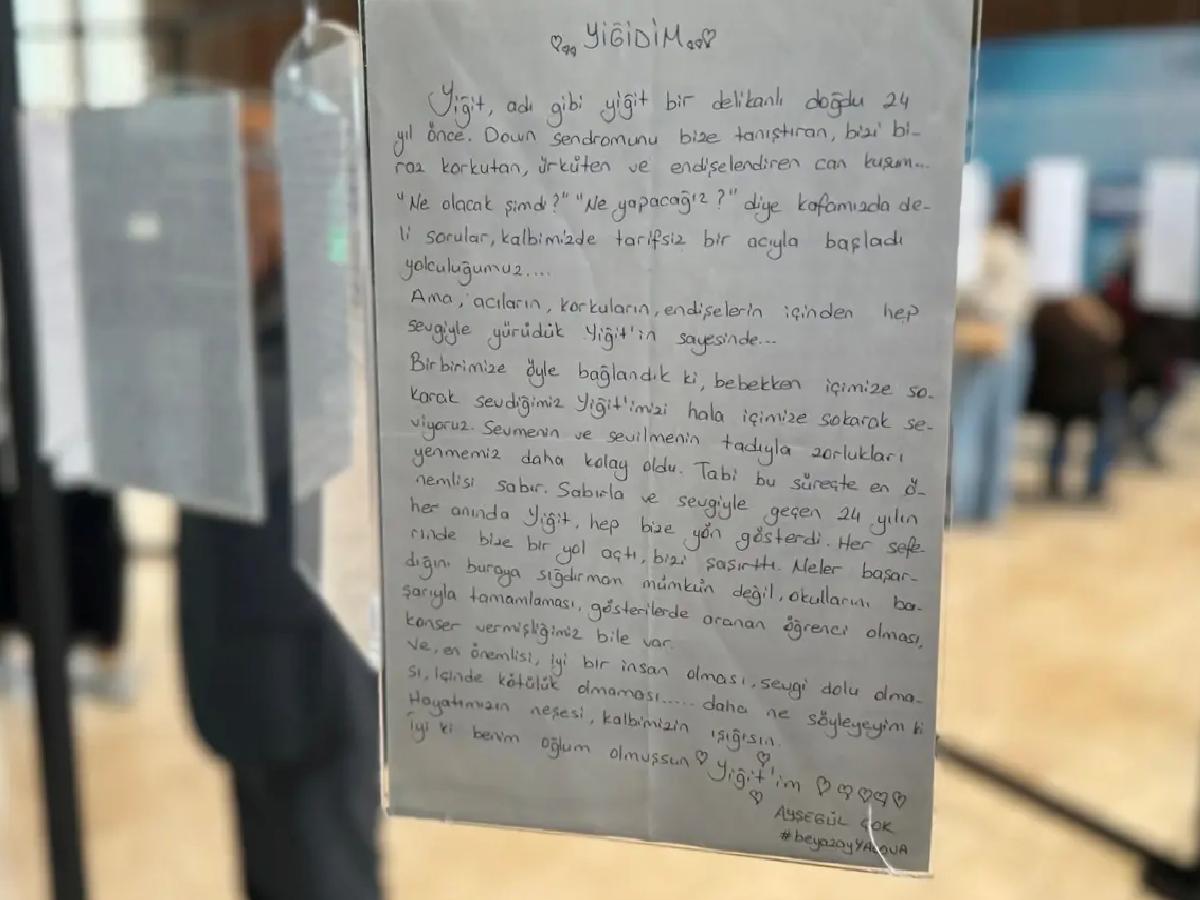 YİĞİDİM
Yiğit, adı gibi yiğit bir delikanlı doğdu 24
yıl önce. Down sendromunu bize tanıştıran, bizi bi-
raz korkutan, ürküten ve endişelendiren can kuşum...
"Ne olacak şimdi?" "Ne yapacağız?" diye kafamızda de-
li sorular, kalbimizde tarifsiz bir acıyla başladı
yolculuğumuz....
Ama, acıların, korkuların, endişelerin içinden hep
sevgiyle yürüdük Yiğit'in sayesinde...
Birbirimize öyle bağlandık ki, bebekken içimize so-
karak sevdiğimiz Yiğit'imizi hala içimize sokarak se-
viyoruz. Sevmenin ve sevilmenin tadıyla zorlukları
yenmemiz daha kolay oldu. Tabi bu süreçte en ö-
nemlisi sabır. Sabırla ve sevgiyle geçen 24 yılın
her anında Yiğit, hep bize yön gösterdi. Her sefe-
rinde bize bir yol açtı, bizi şaşırttı. Neler başar-
dığını buraya sığdırmam mümkün değil, okullarını ba-
şarıyla tamamlaması, gösterilerde aranan öğrenci olması,
konser vermişliğimiz bile var.
Ve, en önemlisi, iyi bir insan olması, sevgi dolu olma-
sı, içinde kötülük olmaması..... daha ne söyleyeyim ki
Hayatımızın neşesi, kalbimizin ışığısın.
İyi ki benim oğlum olmuşsun ♡ Yiğit'im ♡♡♡♡♡
AYŞEGÜL ÇOK
#beyazayYALOVA